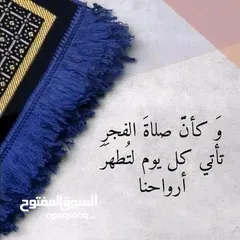 وَ كأنّ صلاةَ الفجرِ
تأتي كل يوم لتُطهرَ
أرواحنا
السوق المفتوح
opensooq.com